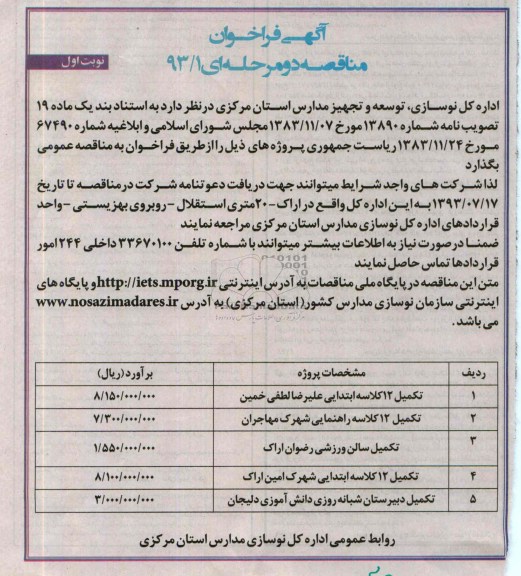 آگهی فراخوان
مناقصه دو مرحله ای ۹۳/۱
نوبت اول
اداره کل نوسازی، توسعه و تجهیز مدارس استان مرکزی در نظر دارد به استناد بند یک ماده ۱۹
تصویب نامه شماره ۱۳۸۹۰ مورخ ۱۳۸۳/۱۱/۰۷ مجلس شورای اسلامی و ابلاغیه شماره ۶۷۴۹۰
مورخ ۱۳۸۳/۱۱/۲۴ ریاست جمهوری پروژه های ذیل را از طریق فراخوان به مناقصه عمومی
بگذارد
لذا شرکت های واجد شرایط میتوانند جهت دریافت دعوتنامه شرکت در مناقصه تا تاریخ
۱۳۹۳/۰۷/۱۷ به این اداره کل واقع در اراک -۲۰متری استقلال - روبروی بهزیستی -واحد
قراردادهای اداره کل نوسازی مدارس استان مرکزی مراجعه نمایند
ضمنا در صورت نیاز به اطلاعات بیشتر میتوانند با شماره تلفن ۳۳۶۷۰۱۰۰ داخلی ۲۴۴ امور
قراردادها تماس حاصل نمایند
متن این مناقصه در پایگاه ملی مناقصات به آدرس اینترنتی http://iets.mporg.ir و پایگاه های
اینترنتی سازمان نوسازی مدارس کشور( استان مرکزی) به آدرس www.nosazimadares.ir
می باشد .
ردیف مشخصات پروژه برآورد (ریال)
۱ تکمیل ۱۲کلاسه ابتدایی علیرضا لطفی خمین ۸/۱۵۰/۰۰۰/۰۰۰
۲ تکمیل ۱۲کلاسه راهنمایی شهرک مهاجران ۷/۳۰۰/۰۰۰/۰۰۰
۳ تکمیل سالن ورزشی رضوان اراک ۱/۵۵۰/۰۰۰/۰۰۰
۴ تکمیل ۱۲کلاسه ابتدایی شهرک امین اراک ۸/۱۰۰/۰۰۰/۰۰۰
۵ تکمیل دبیرستان شبانه روزی دانش آموزی دلیجان ۳/۰۰۰/۰۰۰/۰۰۰
روابط عمومی اداره کل نوسازی مدارس استان مرکزی